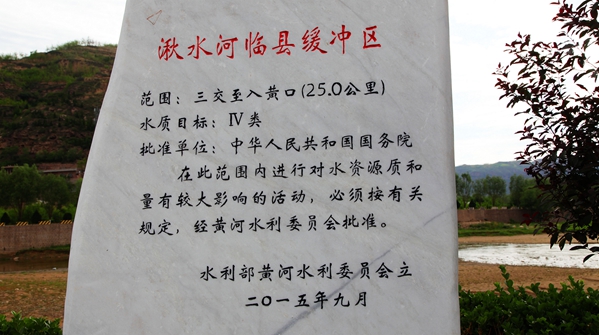 湫水河临县缓冲区
范围：三交至入黄口(25.0公里)
水质目标：Ⅳ类
批准单位：中华人民共和国国务院
在此范围内进行对水资源质和
量有较大影响的活动，必须按有关
规定，经黄河水利委员会批准。
水利部黄河水利委员会立
二〇一五年九月